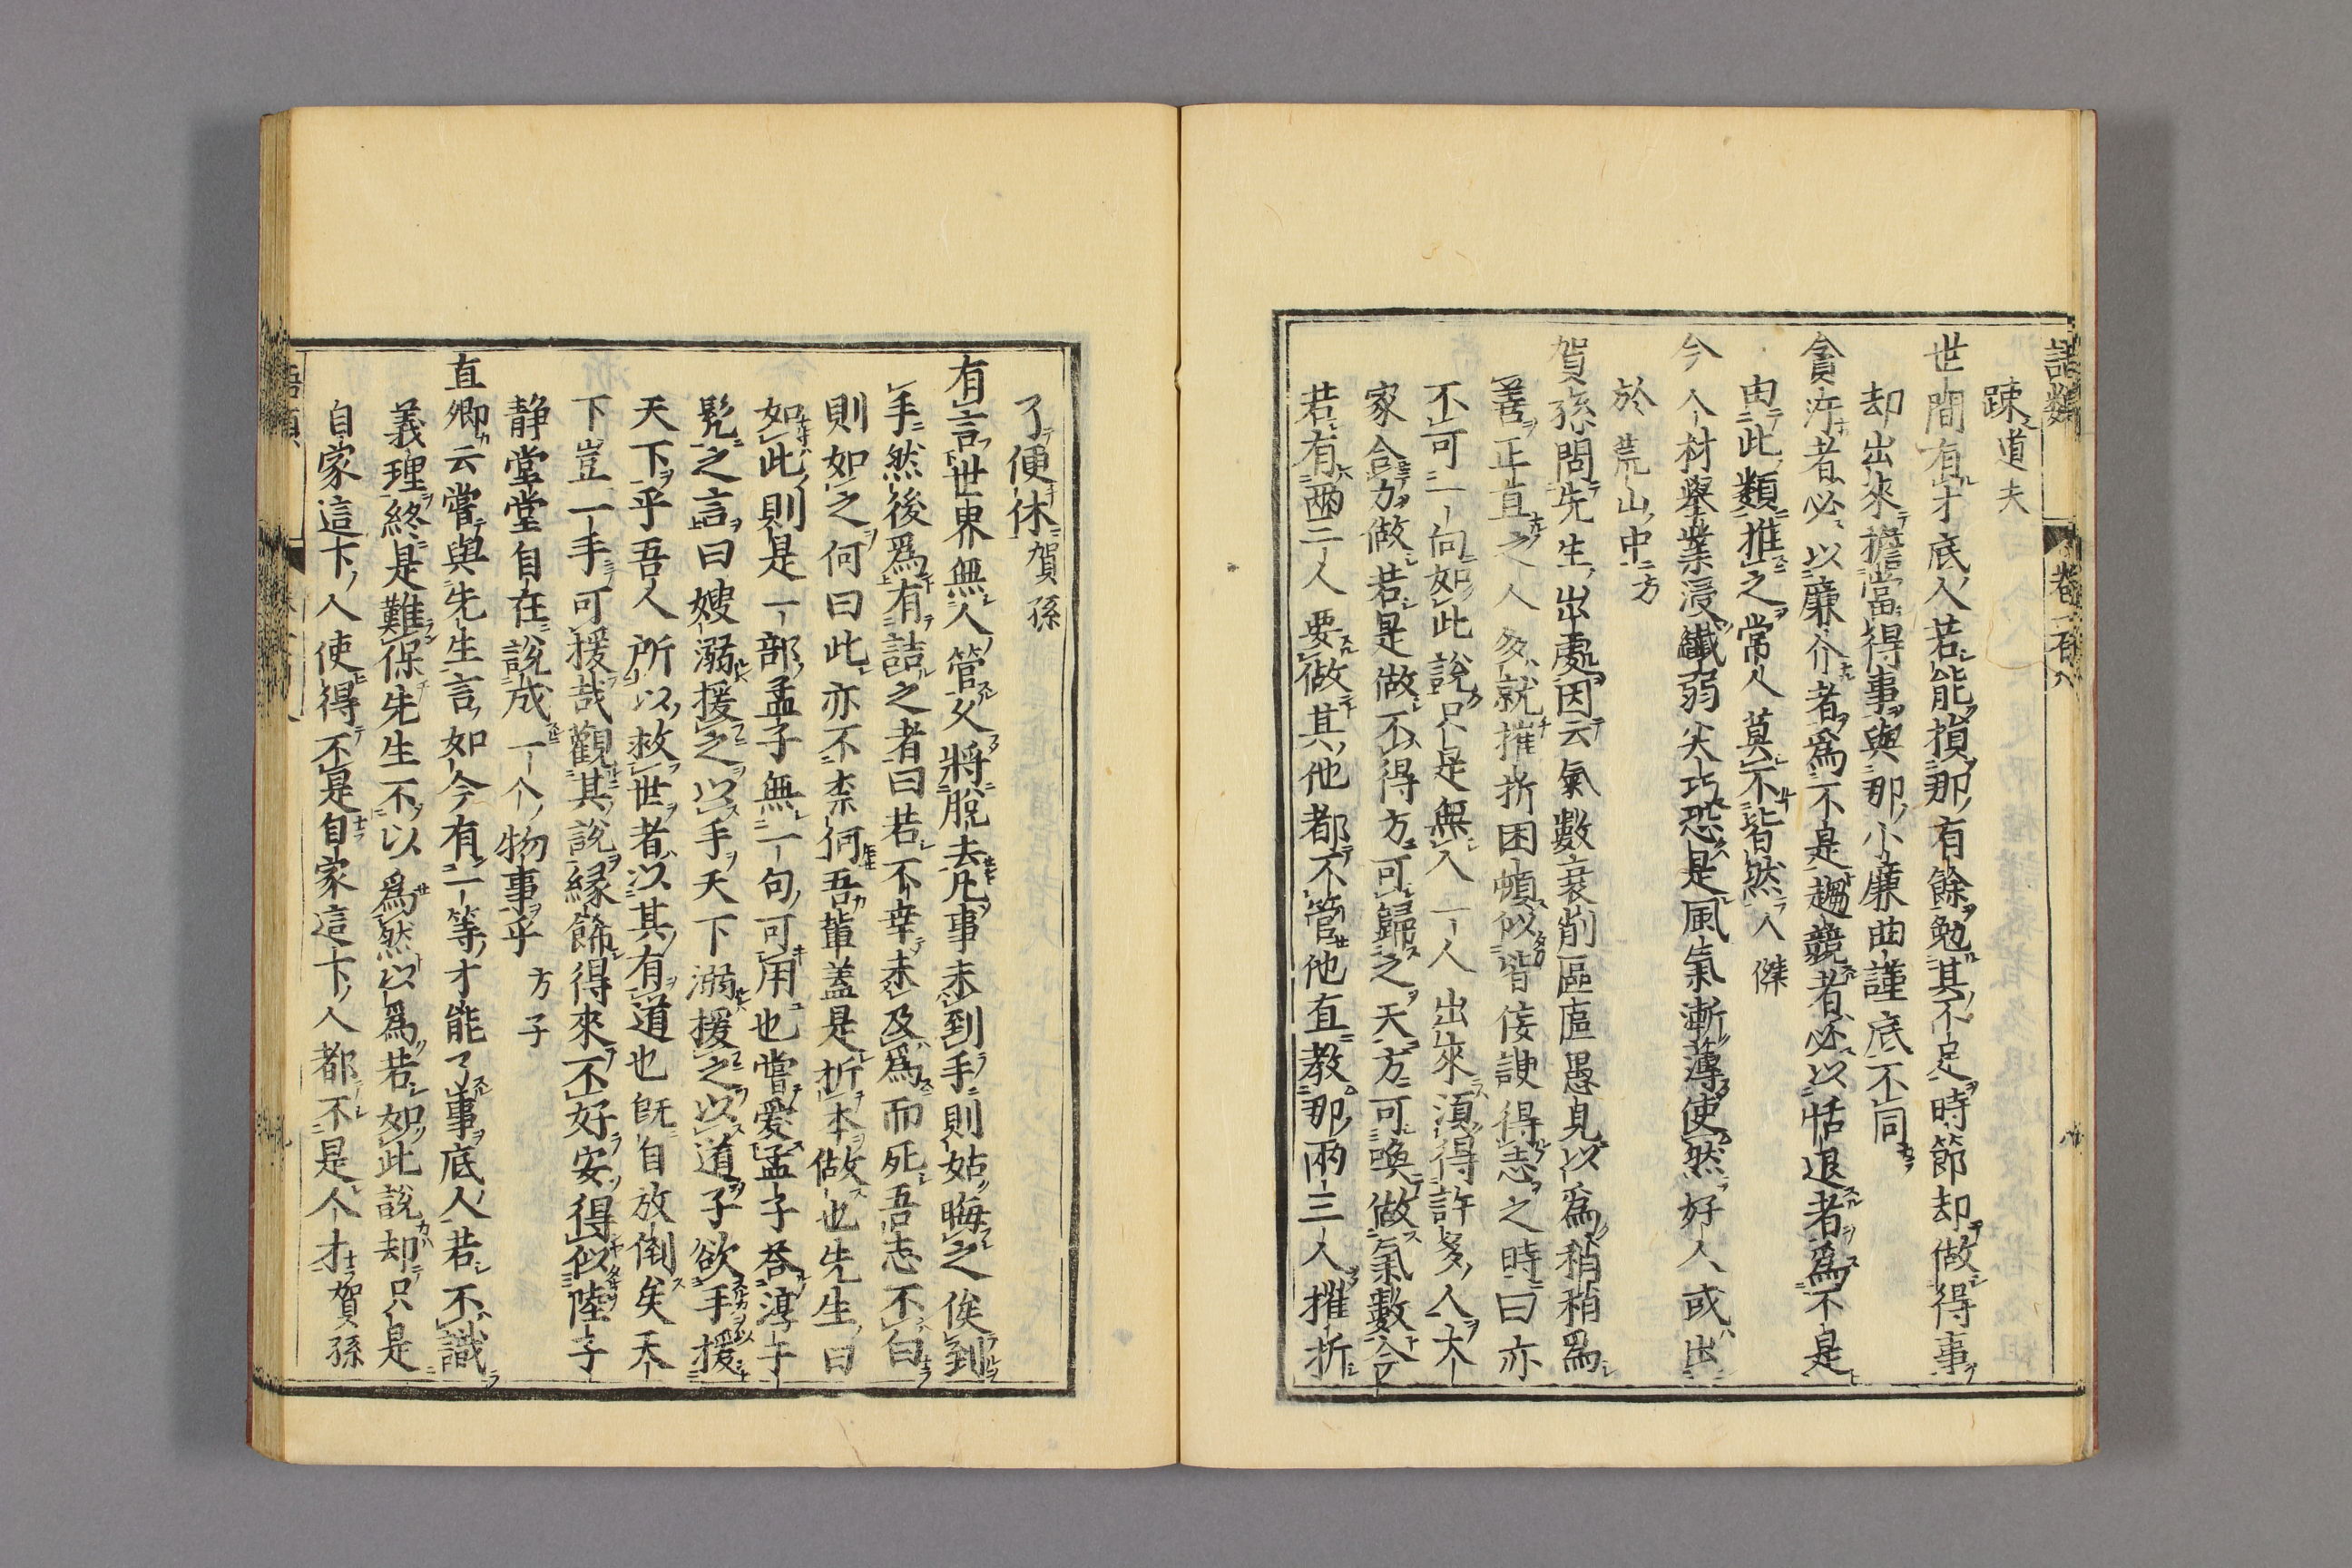 語類 卷一百八
踈道夫
世間有才底人若能損那有餘勉其不足時節却做得事
却出來擔當得事與那小廉曲謹底不同
貪汙者必以廉介者爲不是趨競者必以恬退者爲不是
由此類推之常人莫不皆然人傑
今人材舉業浸纖弱尖巧恐是風氣漸薄使然好人或出
於荒山中方
賀孫問先生出處因云氣數衰削區區愚見以爲稍稍爲
善正直之人多就摧折困頓似皆佞諛得志之時曰亦
不可一向如此說只是無人一人出來須得許多人大
家合力做若是做不得方可歸之天方可喚做氣數今
若有兩三人要做其他都不管他直教那兩三人摧折
了便休賀孫
有言世界無人管久將脫去凡事未到手則姑晦之俟到
手然後爲有詰之者曰若不幸未及爲而死吾志不白
則如之何曰此亦不柰何吾輩蓋是折本做也先生曰
如此則是一部孟子無一句可用也嘗愛孟子荅淳于
髠之言曰嫂溺援之以手天下溺援之以道子欲手援
天下乎吾人所以救世者以其有道也旣自放倒矣天
下豈一手可援哉觀其說緣飾得來不好安得似陸子
静堂堂自在說成一个物事乎方子
直卿云嘗與先生言如今有一等才能了事底人若不識
義理終是難保先生不以爲然以爲若如此說却只是
自家這下人使得不是自家這下人都不是人才賀孫